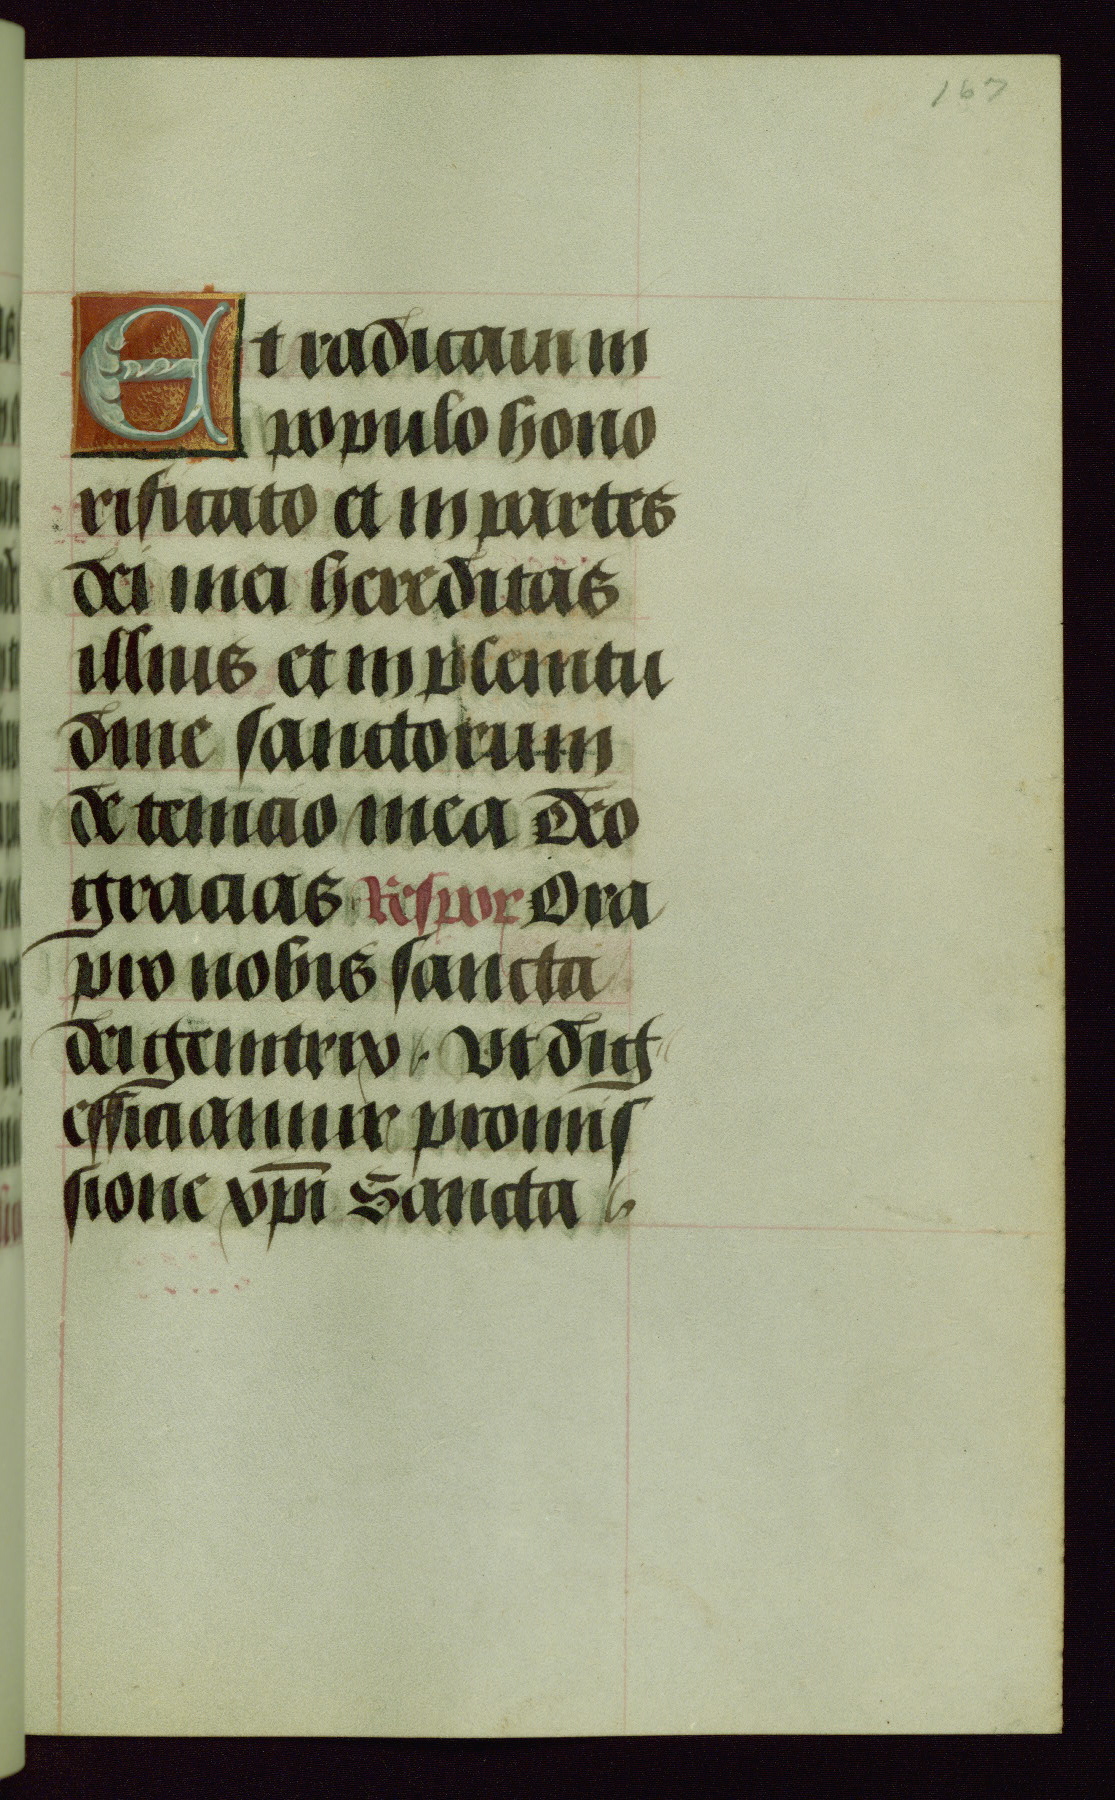 167
Et radicaui in
populo hono
rificato et in partes
dei mei hereditas
illius et in plenitu
dine sanctorum
detencio mea Deo
gracias Respor Ora
pro nobis sancta
dei genitrix. Vt dig
efficiamur promis
sione xpi Sancta